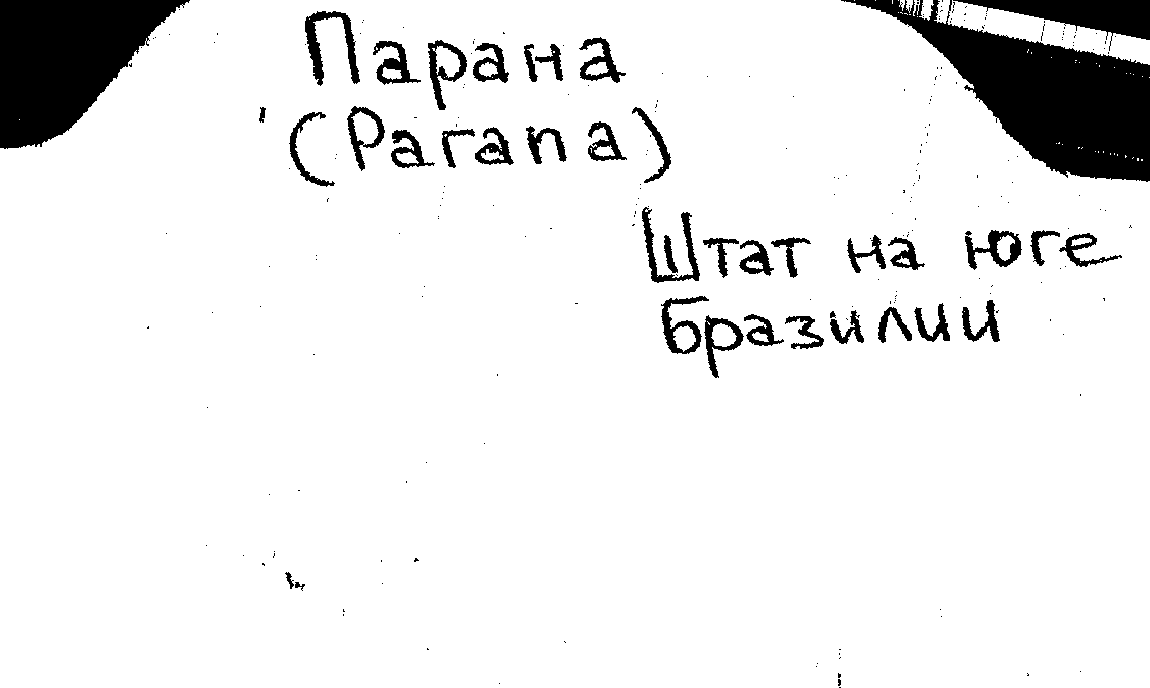 Парана
(Parana)
Штат на юге
бразилии